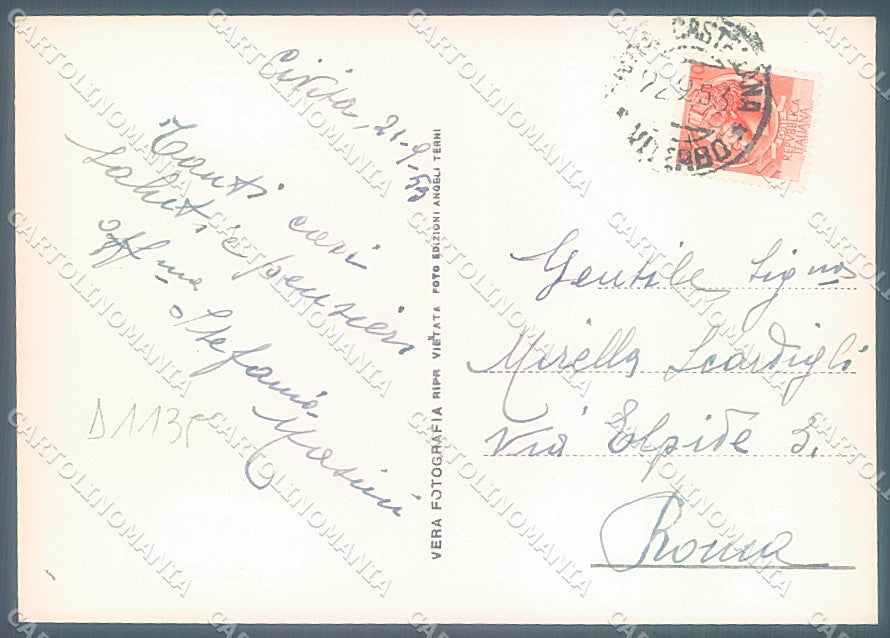 Civita, 21-9-53
Tanti cari
saluti, e pensieri
aff ma Stefania
Masini
D113
VERA FOTOGRAFIA RIPR VIETATA FOTO EDIZIONI ANGELI TERNI
CASTELLANA
VITERBO
POSTE
REPUBBLICA
ITALIANA
Gentile Signa
Mirella Scardigli
Via Elpide 3.
Roma
CARTOLINOMANIA